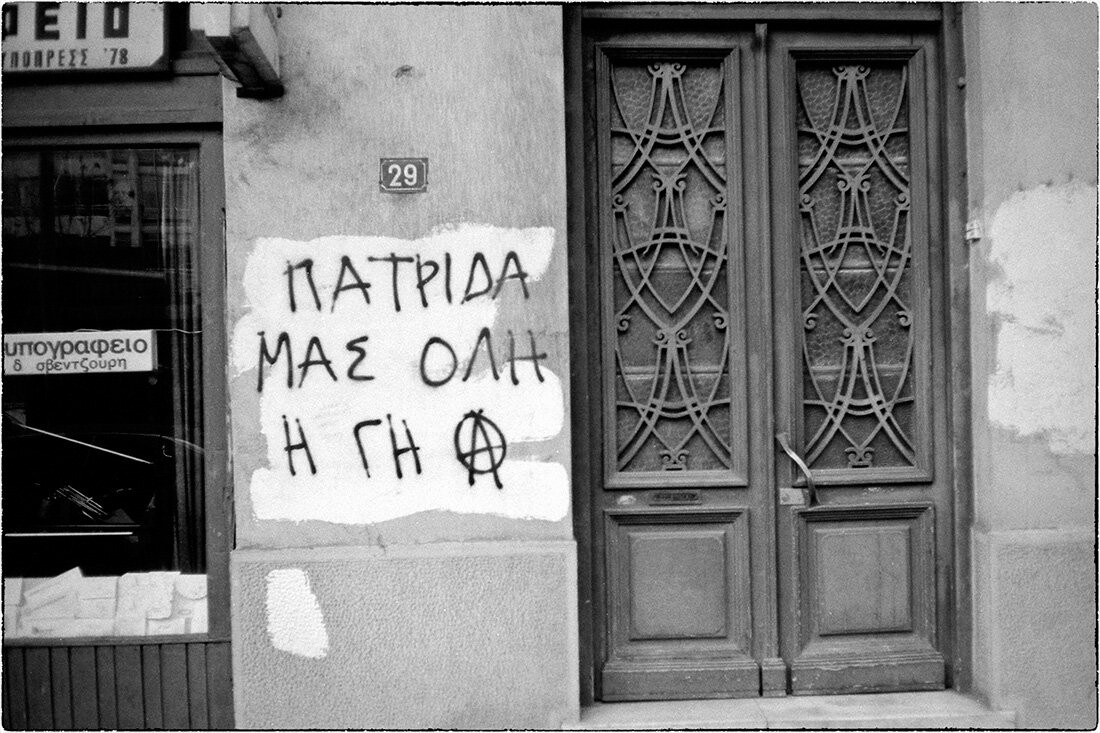 ΦΕΙΟ
ΥΠΟΠΡΕΣΣ '78
29
ΠΑΤΡΙΔΑ
ΜΑΣ ΟΛΗ
Η ΓΗ Ⓐ
υπογραφειο
δ σβεντζουρη